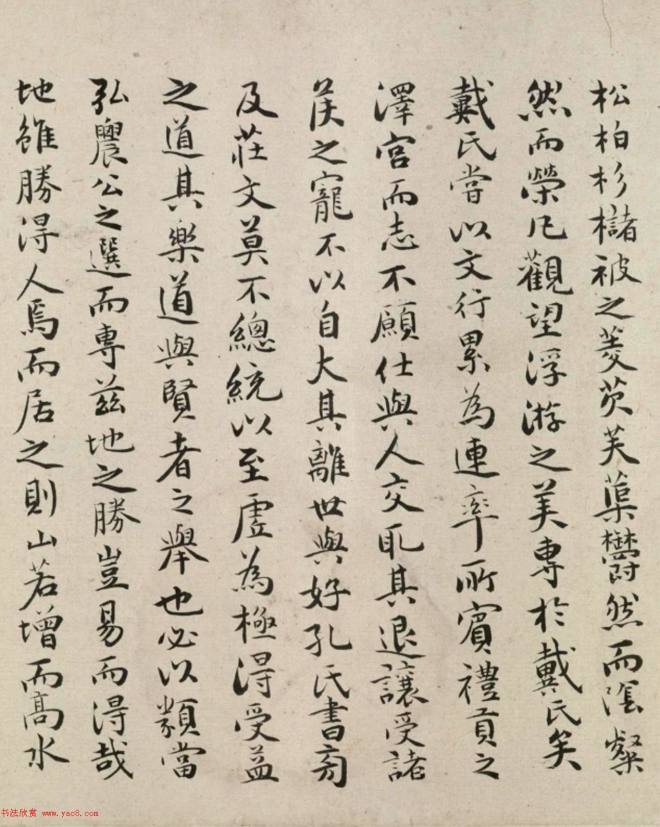 松柏杉櫧被之菱芡芙蕖鬱然而陰粲
然而榮凡觀望浮游之美專於戴氏矣
戴氏嘗以文行累為連率所賓禮貢之
澤宮而志不願仕與人交取其退讓受諸
侯之寵不以自大其離世與好孔氏書旁
及莊文莫不總統以至虛為極得受益
之道其樂道與賢者之舉也必以類當
弘農公之選而專茲地之勝豈易而得哉
地雖勝得人焉而居之則山若增而高水
书法欣赏 www.yac8.com